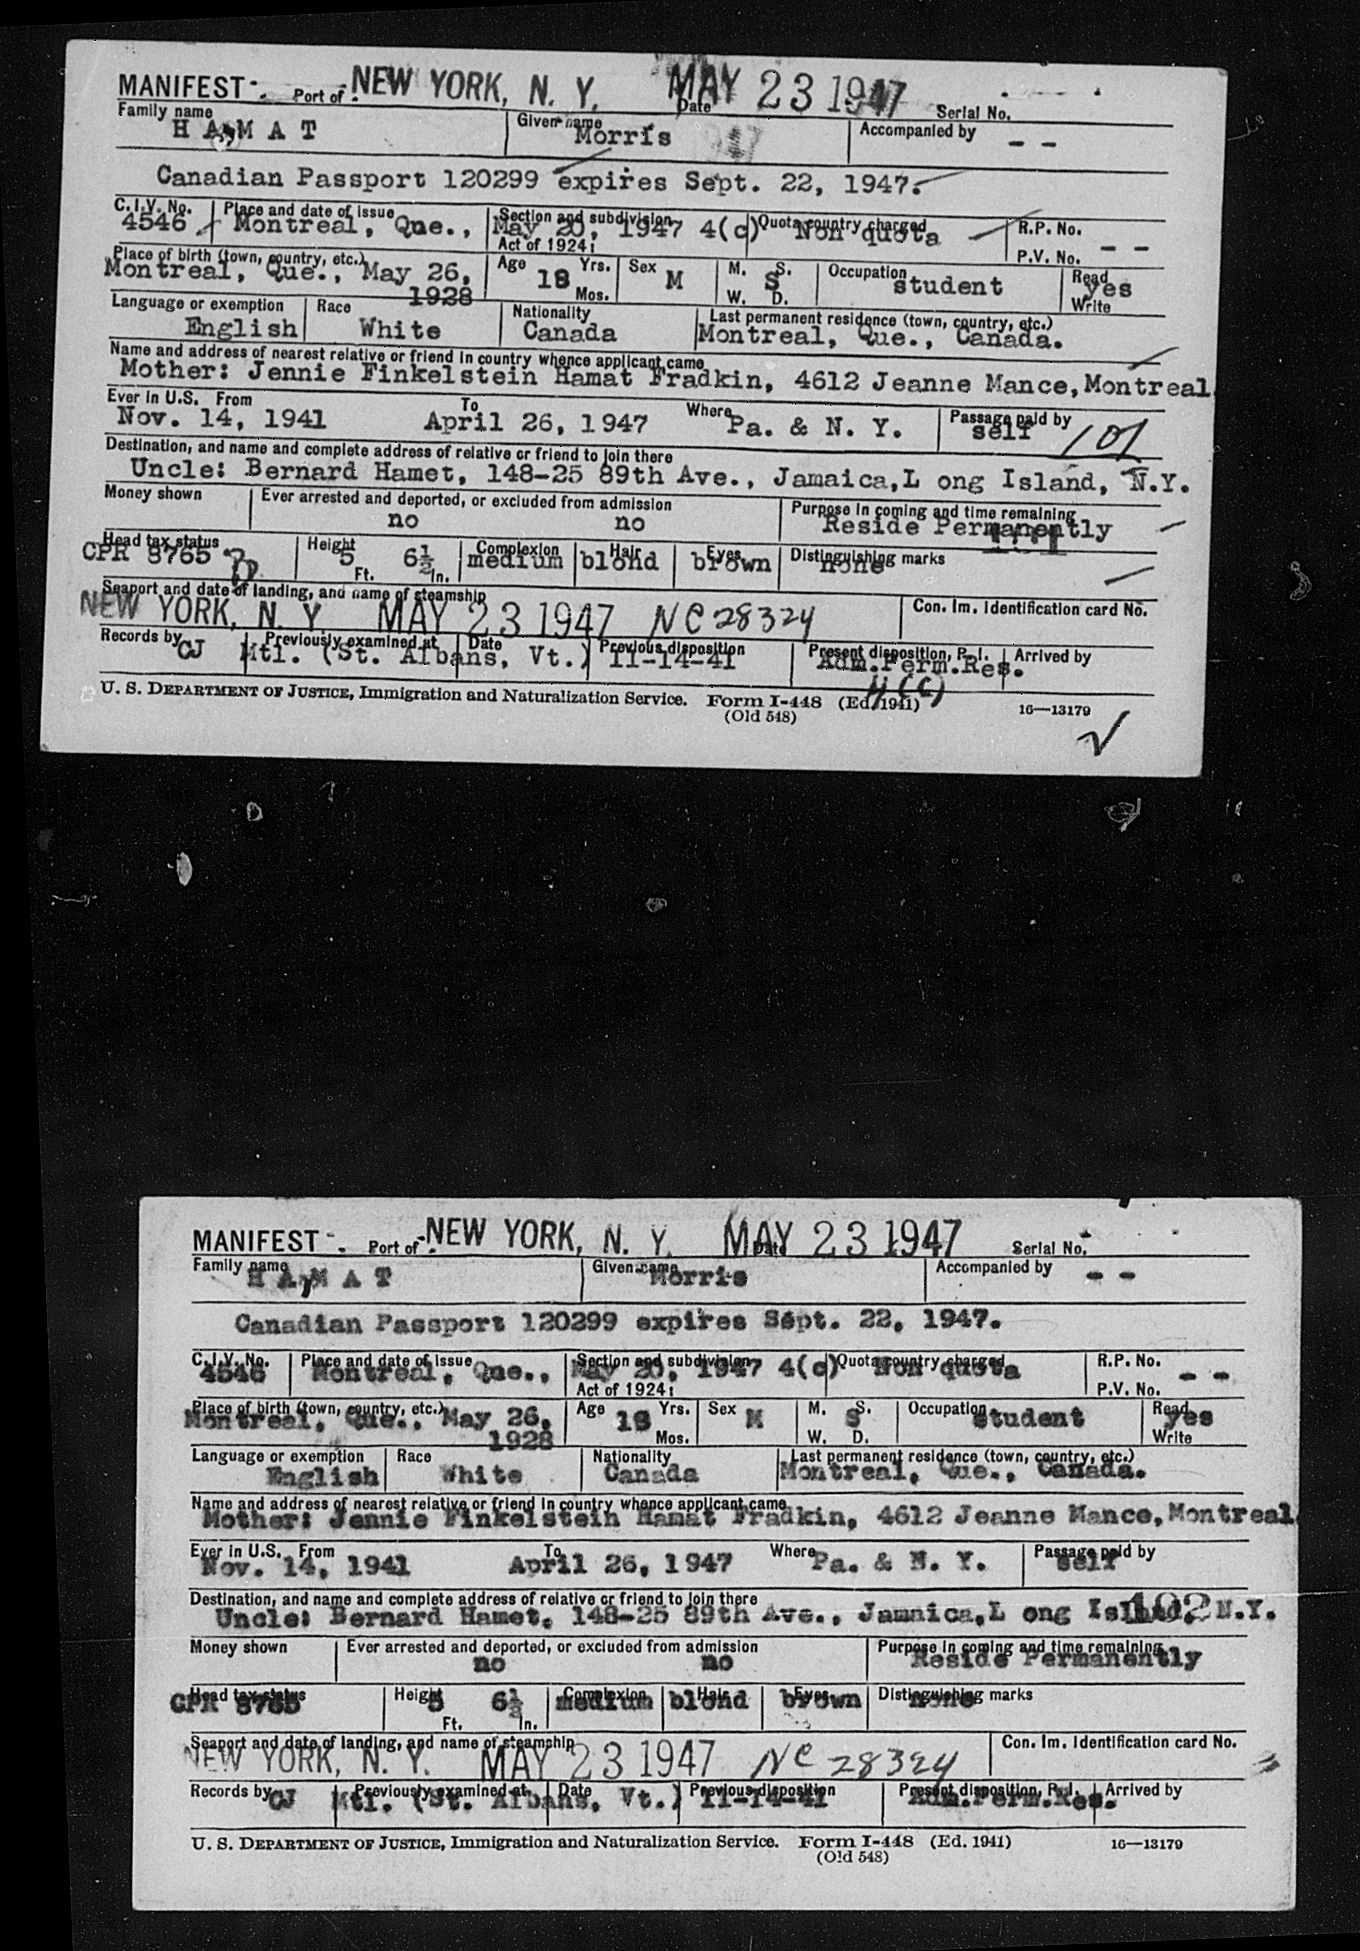 MANIFEST Port of NEW YORK, N. Y. Date MAY 23 1947 Serial No.
Family name H A M A T Given name Morris Accompanied by - -
Canadian Passport 120299 expires Sept. 22, 1947.
C.I.V. No. 4546 Place and date of issue Montreal, Que., May 20, 1947 Section and subdivision 4(c) Act of 1924: Quota country charged Non quota R.P. No. P.V. No. - -
Place of birth (town, country, etc.) Montreal, Que., May 26, 1928 Age 18 Yrs. Mos. Sex M M. S. W. D. S Occupation student Read yes Write
Language or exemption English Race White Nationality Canada Last permanent residence (town, country, etc.) Montreal, Que., Canada.
Name and address of nearest relative or friend in country whence applicant came
Mother: Jennie Finkelstein Hamat Fradkin, 4612 Jeanne Mance, Montreal
Ever in U.S. From Nov. 14, 1941 To April 26, 1947 Where Pa. & N. Y. Passage paid by self 101
Destination, and name and complete address of relative or friend to join there
Uncle: Bernard Hamet, 148-25 89th Ave., Jamaica,L ong Island, N.Y.
Money shown Ever arrested and deported, or excluded from admission no no Purpose in coming and time remaining Reside Permanently
Head tax status CPR 8765 Height 5 Ft. 6½ In. Complexion medium Hair blond Eyes brown Distinguishing marks none
Seaport and date of landing, and name of steamship NEW YORK, N. Y. MAY 23 1947 NC 28324 Con. Im. Identification card No.
Records by CJ Previously examined at Mtl. (St. Albans, Vt.) Date Previous disposition 11-14-41 Present disposition, P. I. Adm.Perm.Res. 4(c) Arrived by
U. S. DEPARTMENT OF JUSTICE, Immigration and Naturalization Service. Form I-448 (Ed. 1941) 16—13179
(Old 548)
MANIFEST Port of NEW YORK, N. Y. Date MAY 23 1947 Serial No.
Family name H A M A T Given name Morris Accompanied by - -
Canadian Passport 120299 expires Sept. 22, 1947.
C.I.V. No. 4546 Place and date of issue Montreal, Que., May 20, 1947 Section and subdivision 4(c) Act of 1924: Quota country charged Non quota R.P. No. P.V. No. - -
Place of birth (town, country, etc.) Montreal, Que., May 26, 1928 Age 18 Yrs. Mos. Sex M M. S. W. D. S Occupation student Read yes Write
Language or exemption English Race White Nationality Canada Last permanent residence (town, country, etc.) Montreal, Que., Canada.
Name and address of nearest relative or friend in country whence applicant came
Mother: Jennie Finkelstein Hamat Fradkin, 4612 Jeanne Mance, Montreal
Ever in U.S. From Nov. 14, 1941 To April 26, 1947 Where Pa. & N. Y. Passage paid by self
Destination, and name and complete address of relative or friend to join there
Uncle: Bernard Hamet, 148-25 89th Ave., Jamaica,L ong Island, N.Y.
Money shown Ever arrested and deported, or excluded from admission no no Purpose in coming and time remaining Reside Permanently
Head tax status CPR 8765 Height 5 Ft. 6½ In. Complexion medium Hair blond Eyes brown Distinguishing marks none
Seaport and date of landing, and name of steamship NEW YORK, N. Y. MAY 23 1947 NC 28324 Con. Im. Identification card No.
Records by CJ Previously examined at Mtl. (St. Albans, Vt.) Date Previous disposition 11-14-41 Present disposition, P. I. Adm.Perm.Res. Arrived by
U. S. DEPARTMENT OF JUSTICE, Immigration and Naturalization Service. Form I-448 (Ed. 1941) 16—13179
(Old 548)